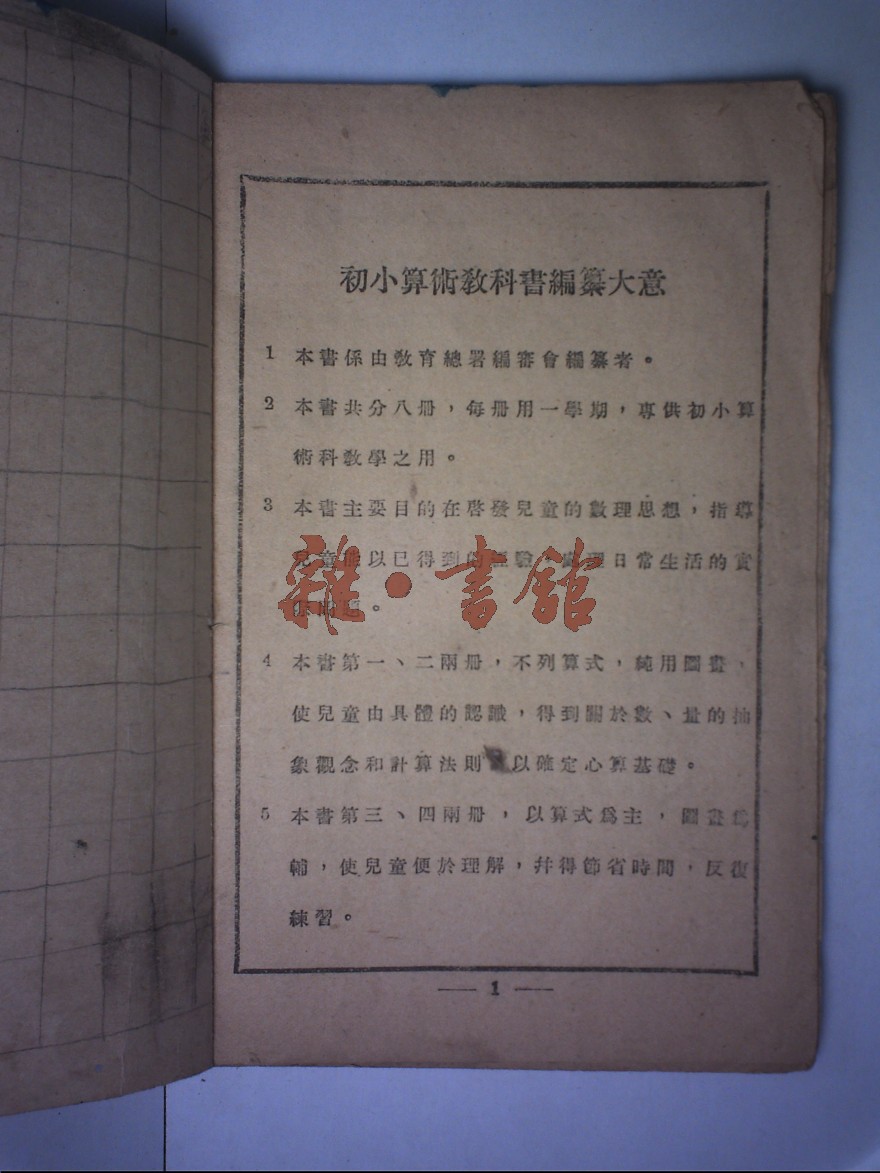 初小算術教科書編纂大意
1 本書係由教育總署編審會編纂者。
2 本書共分八册，每册用一學期，專供初小算
術科教學之用。
3 本書主要目的在啓發兒童的數理思想，指導
兒童能以已得到的經驗，處理日常生活的實
際問題。
雜·書館
4 本書第一、二兩册，不列算式，純用圖畫，
使兒童由具體的認識，得到關於數、量的抽
象觀念和計算法則，以確定心算基礎。
5 本書第三、四兩册，以算式爲主，圖畫爲
輔，使兒童便於理解，幷得節省時間，反復
練習。
— 1 —